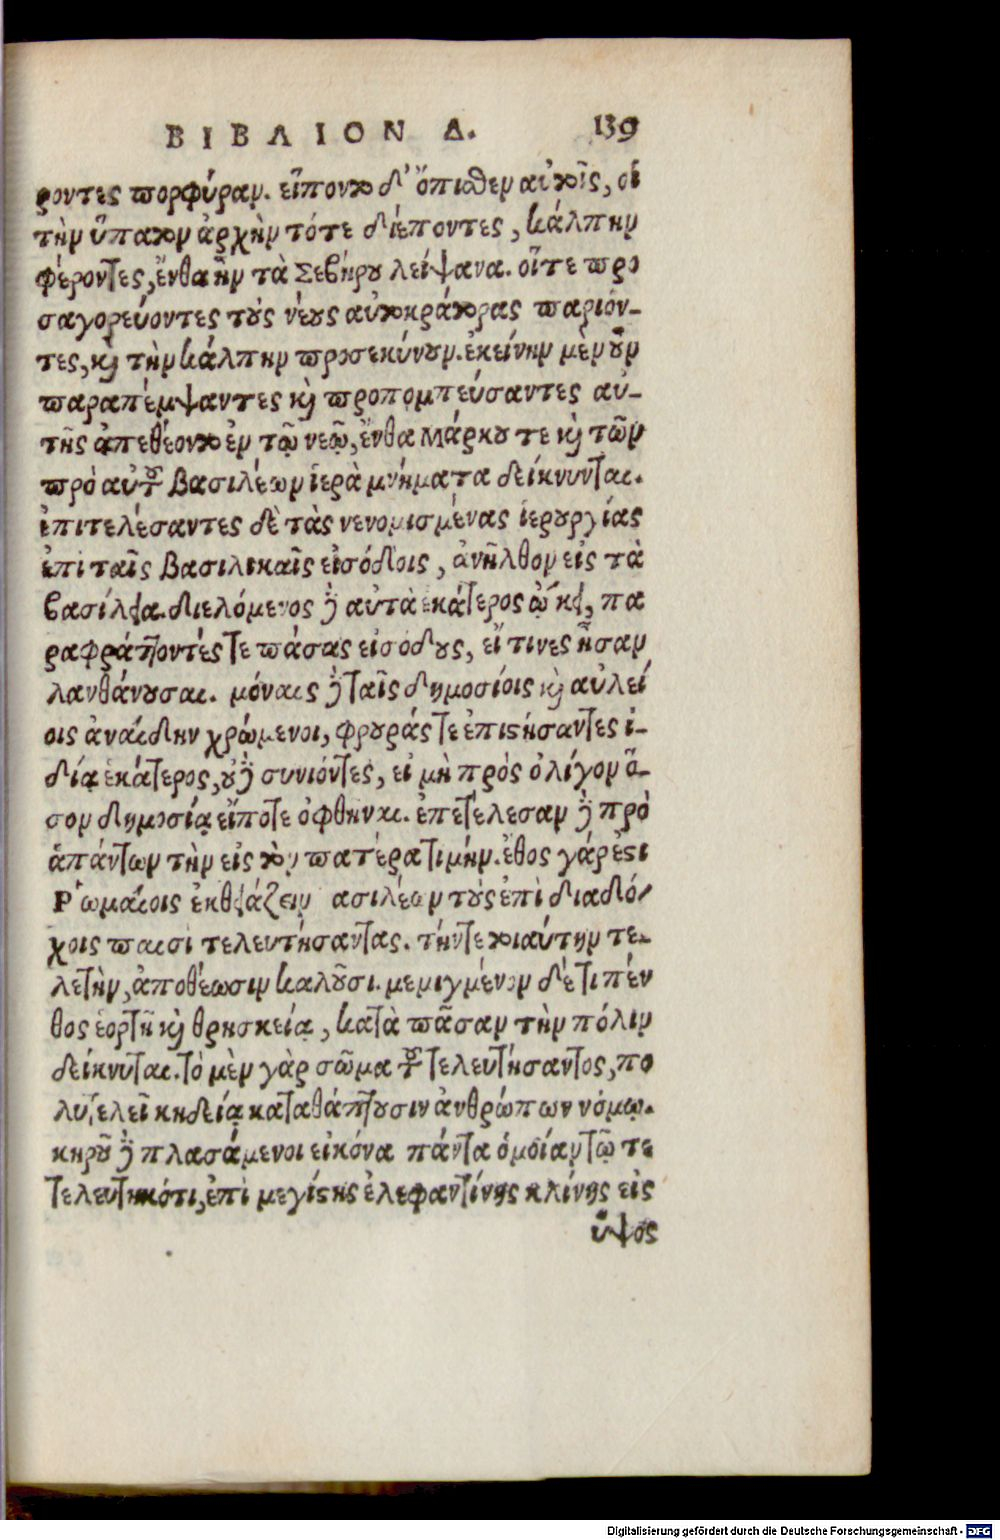 ΒΙΒΛΙΟΝ Δ. 139
ροντες πορφύραν. εἵποντο δ' ὄπισθεν αὐτοῖς, οἱ
τὴν ὕπατον ἀρχὴν τότε διέποντες, κάλπην
φέροντες, ἔνθα ἦν τὰ Σεβήρου λείψανα. οἵτε προ
σαγορεύοντες τοὺς νέους αὐτοκράτορας παριόν-
τες, καὶ τὴν κάλπην προσεκύνουν. ἐκείνην μὲν οὖν
παραπέμψαντες καὶ προπομπεύσαντες αὐ-
τῆς ἀπεθέοντο ἐν τῷ νεῷ, ἔνθα Μάρκου τε καὶ τῶν
πρὸ αὐτοῦ βασιλέων ἱερὰ μνήματα δείκνυνται.
ἐπιτελέσαντες δὲ τὰς νενομισμένας ἱερουργίας
ἐπὶ ταῖς βασιλικαῖς εἰσόδοις, ἀνῆλθον εἰς τὰ
βασίλεια. διελόμενος δὲ αὐτὰ ἑκάτερος ᾤκει, πα
ραφράττοντές τε πάσας εἰσόδους, εἴ τινες ἦσαν
λανθάνουσαι. μόναις δὲ ταῖς δημοσίοις καὶ αὐλεί
οις ἀναίδην χρώμενοι, φρουράς τε ἐπιστήσαντες ἰ-
δίᾳ ἑκάτερος, οὐδὲ συνιόντες, εἰ μὴ πρὸς ὀλίγον ὅ-
σον δημοσίᾳ εἴποτε ὀφθῆναι. ἐπετέλεσαν δὲ πρὸ
ἁπάντων τὴν εἰς τὸν πατέρα τιμήν. ἔθος γάρ ἐστι
Ῥωμαίοις ἐκθειάζειν ασιλέων τοὺς ἐπὶ διαδό-
χοις παισὶ τελευτήσαντας. τήν τε τοιαύτην τε-
λετὴν, ἀποθέωσιν καλοῦσι. μεμιγμένον δέ τι πέν
θος ἑορτῇ καὶ θρησκείᾳ, κατὰ πᾶσαν τὴν πόλιν
δείκνυται. τὸ μὲν γὰρ σῶμα τοῦ τελευτήσαντος, πο
λυτελεῖ κηδείᾳ καταθάπτουσιν ἀνθρώπων νόμῳ.
κηροῦ δὲ πλασάμενοι εἰκόνα πάντα ὁμοίαν τῷ τε
τελευτηκότι, ἐπὶ μεγίστης ἐλεφαντίνης κλίνης εἰς
ὕψος
Digitalisierung gefördert durch die Deutsche Forschungsgemeinschaft - DFG